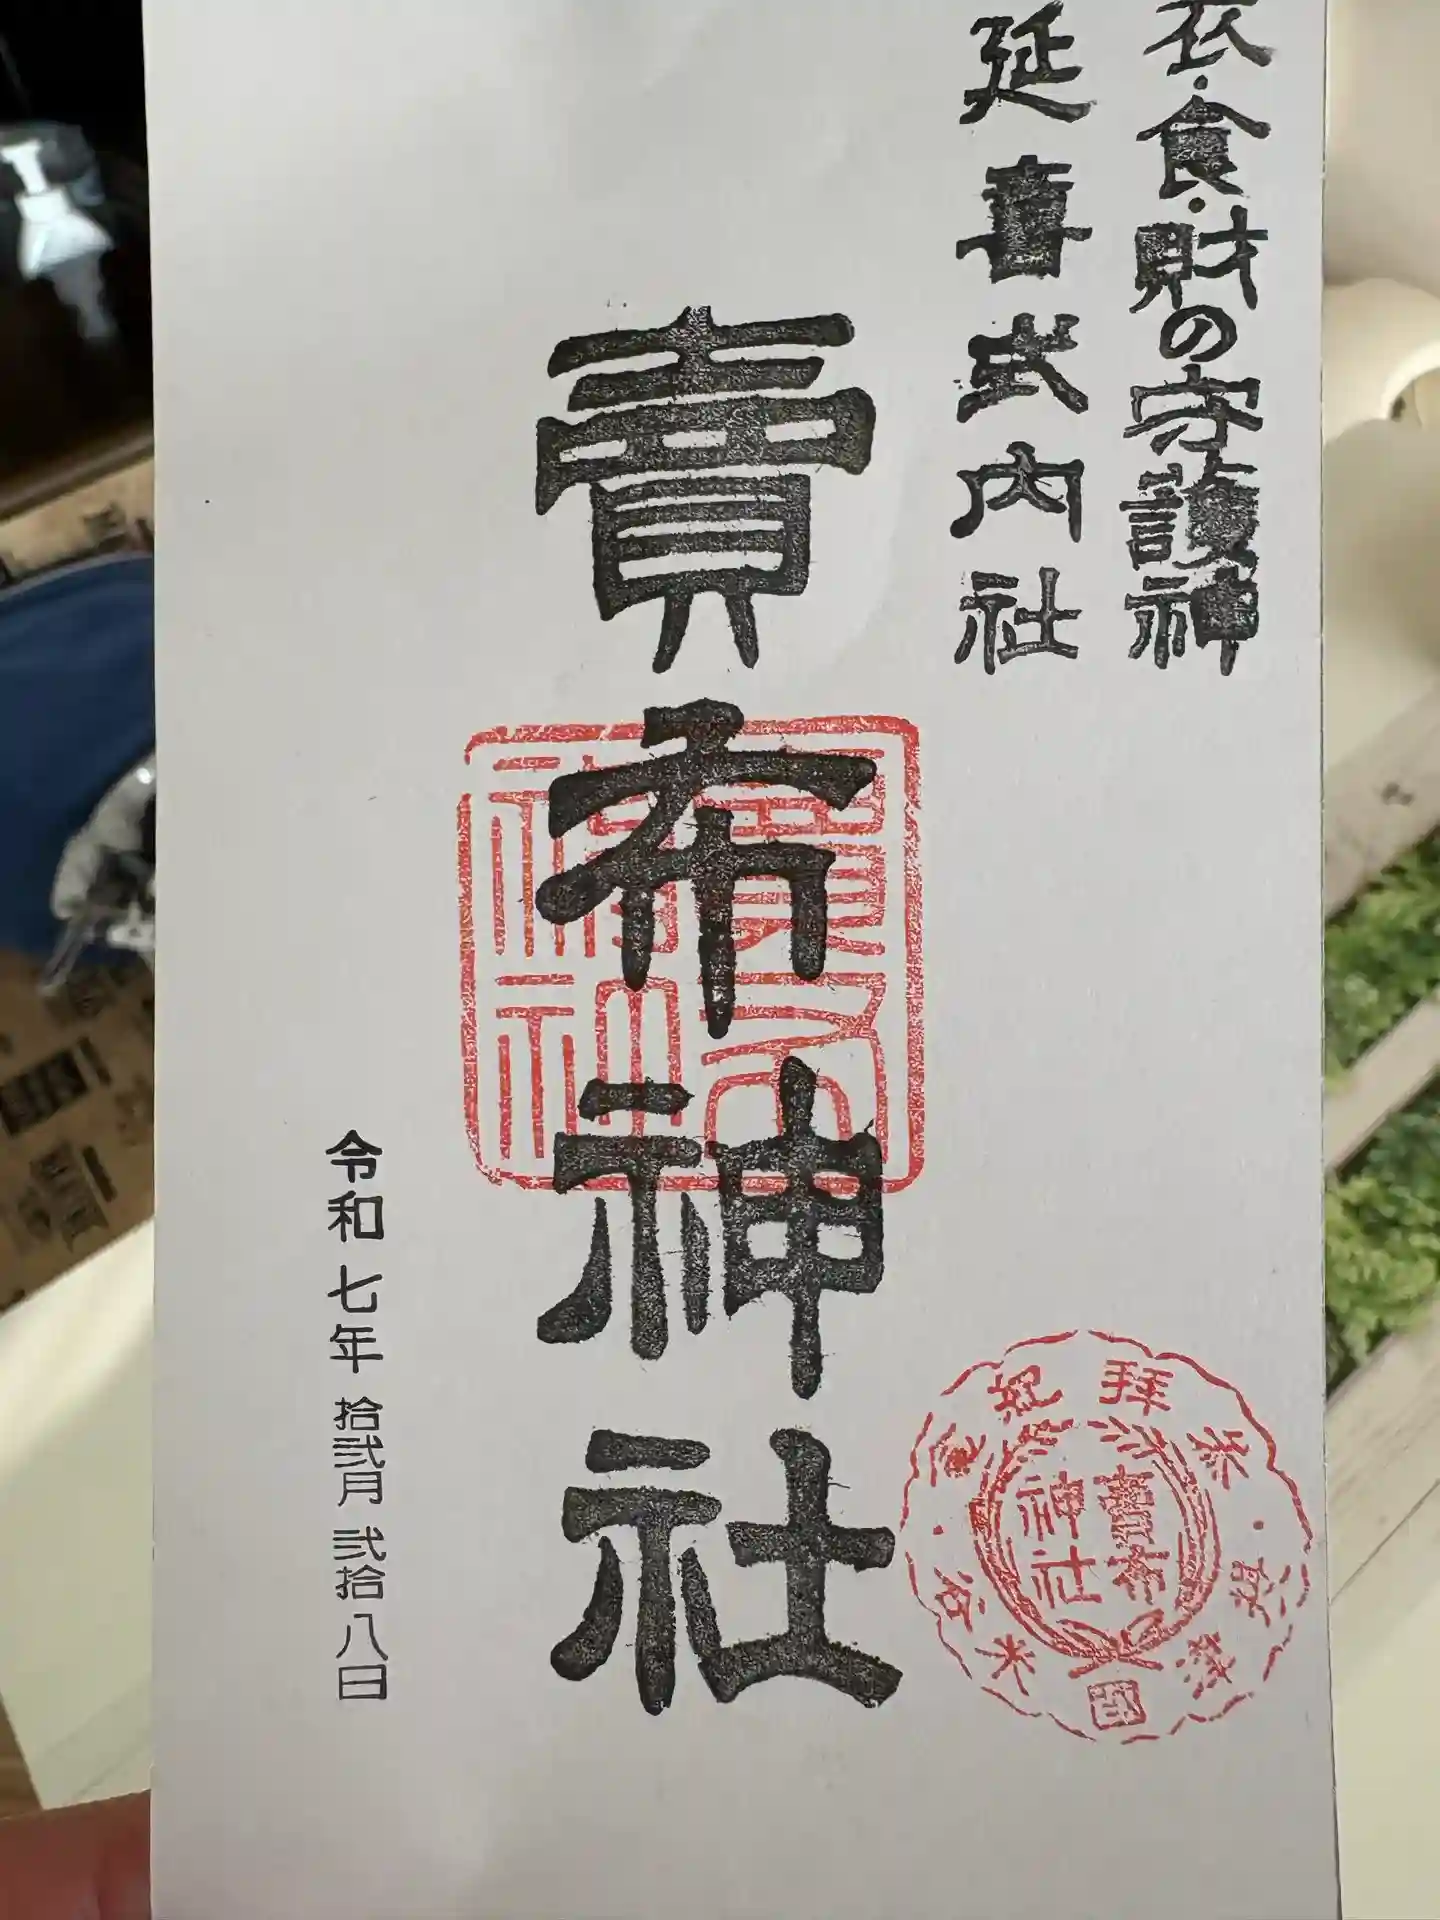 衣・食・財の守護神
延喜式内社
賣布神社
令和七年拾弐月弐拾八日
賣布神社
参拝記念
賣布
神社